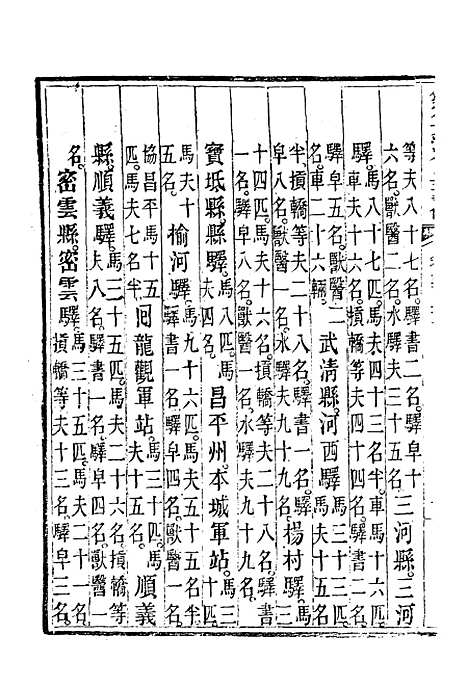 等夫八十七名。驛書二名。驛皁十
六名。獸醫二名。水夫三十五名
三河縣。三河
驛。
馬八十七匹。馬夫四十三名半。車馬十六匹。
車夫十六名。摃轎等夫四十四名。驛書二名。
驛皁五名。獸醫二
名。車二十六輛。
武清縣。河西驛。
馬三十三匹。
馬夫十五名
半。摃轎等夫二十八名。驛書一名。驛
皁八名。獸醫一名。水夫九十九名。
楊村驛。
馬三
十四匹。馬夫十六名。摃轎等夫二十八名。驛書
一名。獸醫一名。水夫九十九名。
寶坻縣縣驛。
馬八匹。馬
夫四名。
昌平州。本城軍站。
馬三
十匹
馬夫十
五名。
榆河驛。
驛書一名。驛皁四名。獸醫一
協昌平馬十五
匹。馬夫七名半。
回龍觀軍站。
馬三十匹。馬
夫十五名。
順義
縣。順義驛。
馬三十五匹。馬夫二十六名。摃轎等
夫八名。驛書一名。驛皁四名。獸醫一
名。
密雲縣。密雲驛。
馬三十五匹。馬夫二十六名。
摃轎等夫十三名。驛皁三名